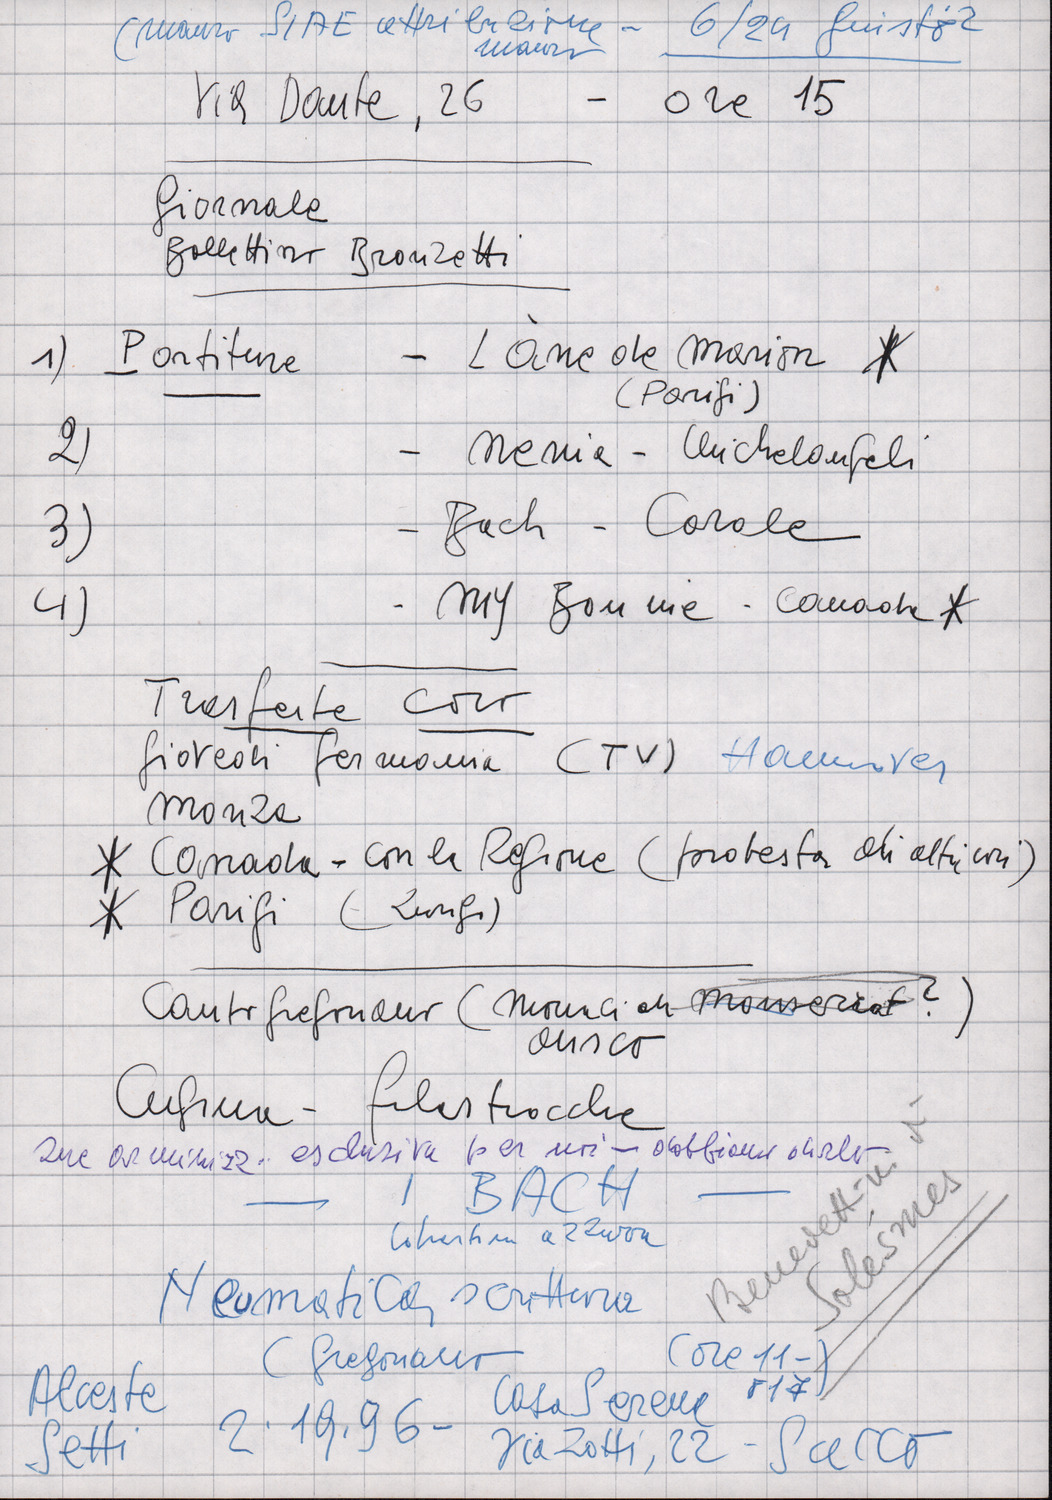 (mauro SIAE attribuzione - 6/24
mauro
Via Dante, 26 - ore 15
Giornale
Bollettino Bronzetti
1) Partiture - L Âne de Marion *
(Parigi)
2) - Nenia - Michelangeli
3) - Bach - Corale
4) - MY Bonnie - Canada *
Trasferte Coro
Giovedì Germania (TV) Hannover
Monza
* Canada - con la Regione (protesta di altri cori)
* Parigi (- Lungi)
Canto gregoriano (Monaci di Monserrat ?)
disco
Cugina - filastrocche
esclusiva per noi - dobbiamo dirlo
I BACH
azzurra
Neumatica, scrittura
(gregoriano
Benedettini di
Solèsmes
(ore 11-)
o 17
Alceste
Setti
2.19.96 - Casa Serena
Via Zotti, 22 - Sacco